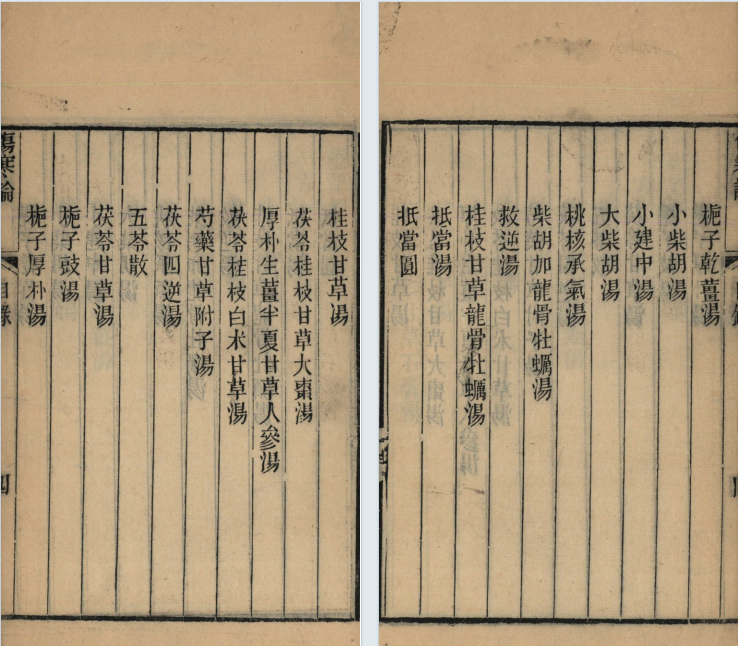 桂枝甘草湯
茯苓桂枝甘草大棗湯
厚朴生薑半夏甘草人參湯
茯苓桂枝白术甘草湯
芍藥甘草附子湯
茯苓四逆湯
五苓散
茯苓甘草湯
梔子豉湯
梔子厚朴湯
傷寒論 目錄 四
梔子乾薑湯
小柴胡湯
小建中湯
大柴胡湯
桃核承氣湯
柴胡加龍骨牡蠣湯
救逆湯
桂枝甘草龍骨牡蠣湯
抵當湯
抵當圓